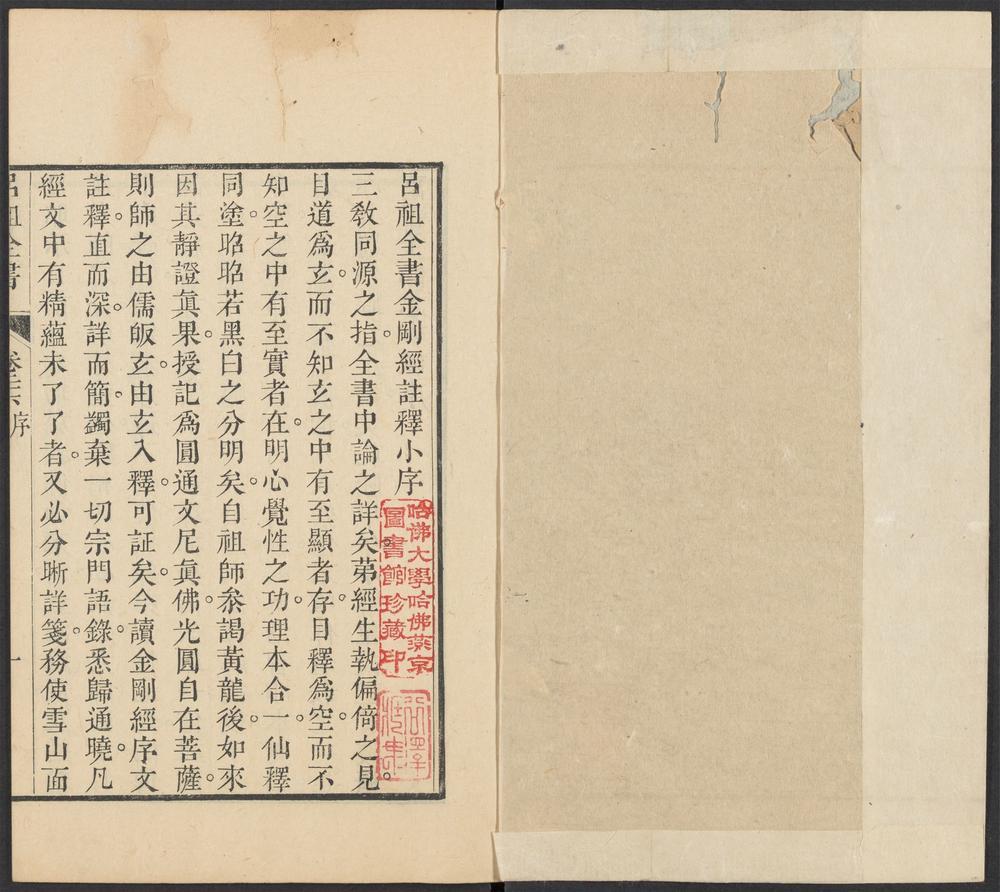 呂祖全書金剛經註釋小序
三敎同源之指。全書中論之詳矣。第經生執偏倚之見。
目道爲玄。而不知玄之中有至顯者存。目釋爲空。而不
知空之中有至實者在。明心覺性之功。理本合一。仙釋
同塗。昭昭若黑白之分明矣。自祖師叅謁黃龍後。如來
因其靜證眞果。授記爲圓通文尼眞佛。光圓自在菩薩。
則師之由儒皈玄。由玄入釋。可証矣。今讀金剛經序文
註釋。直而深。詳而簡。蠲棄一切宗門語錄。悉歸通曉。凡
經文中有精蘊未了了者。又必分晰詳箋。務使雪山面
呂祖全書
卷六
序
一
哈佛大學哈佛燕京
圖書館珍藏印